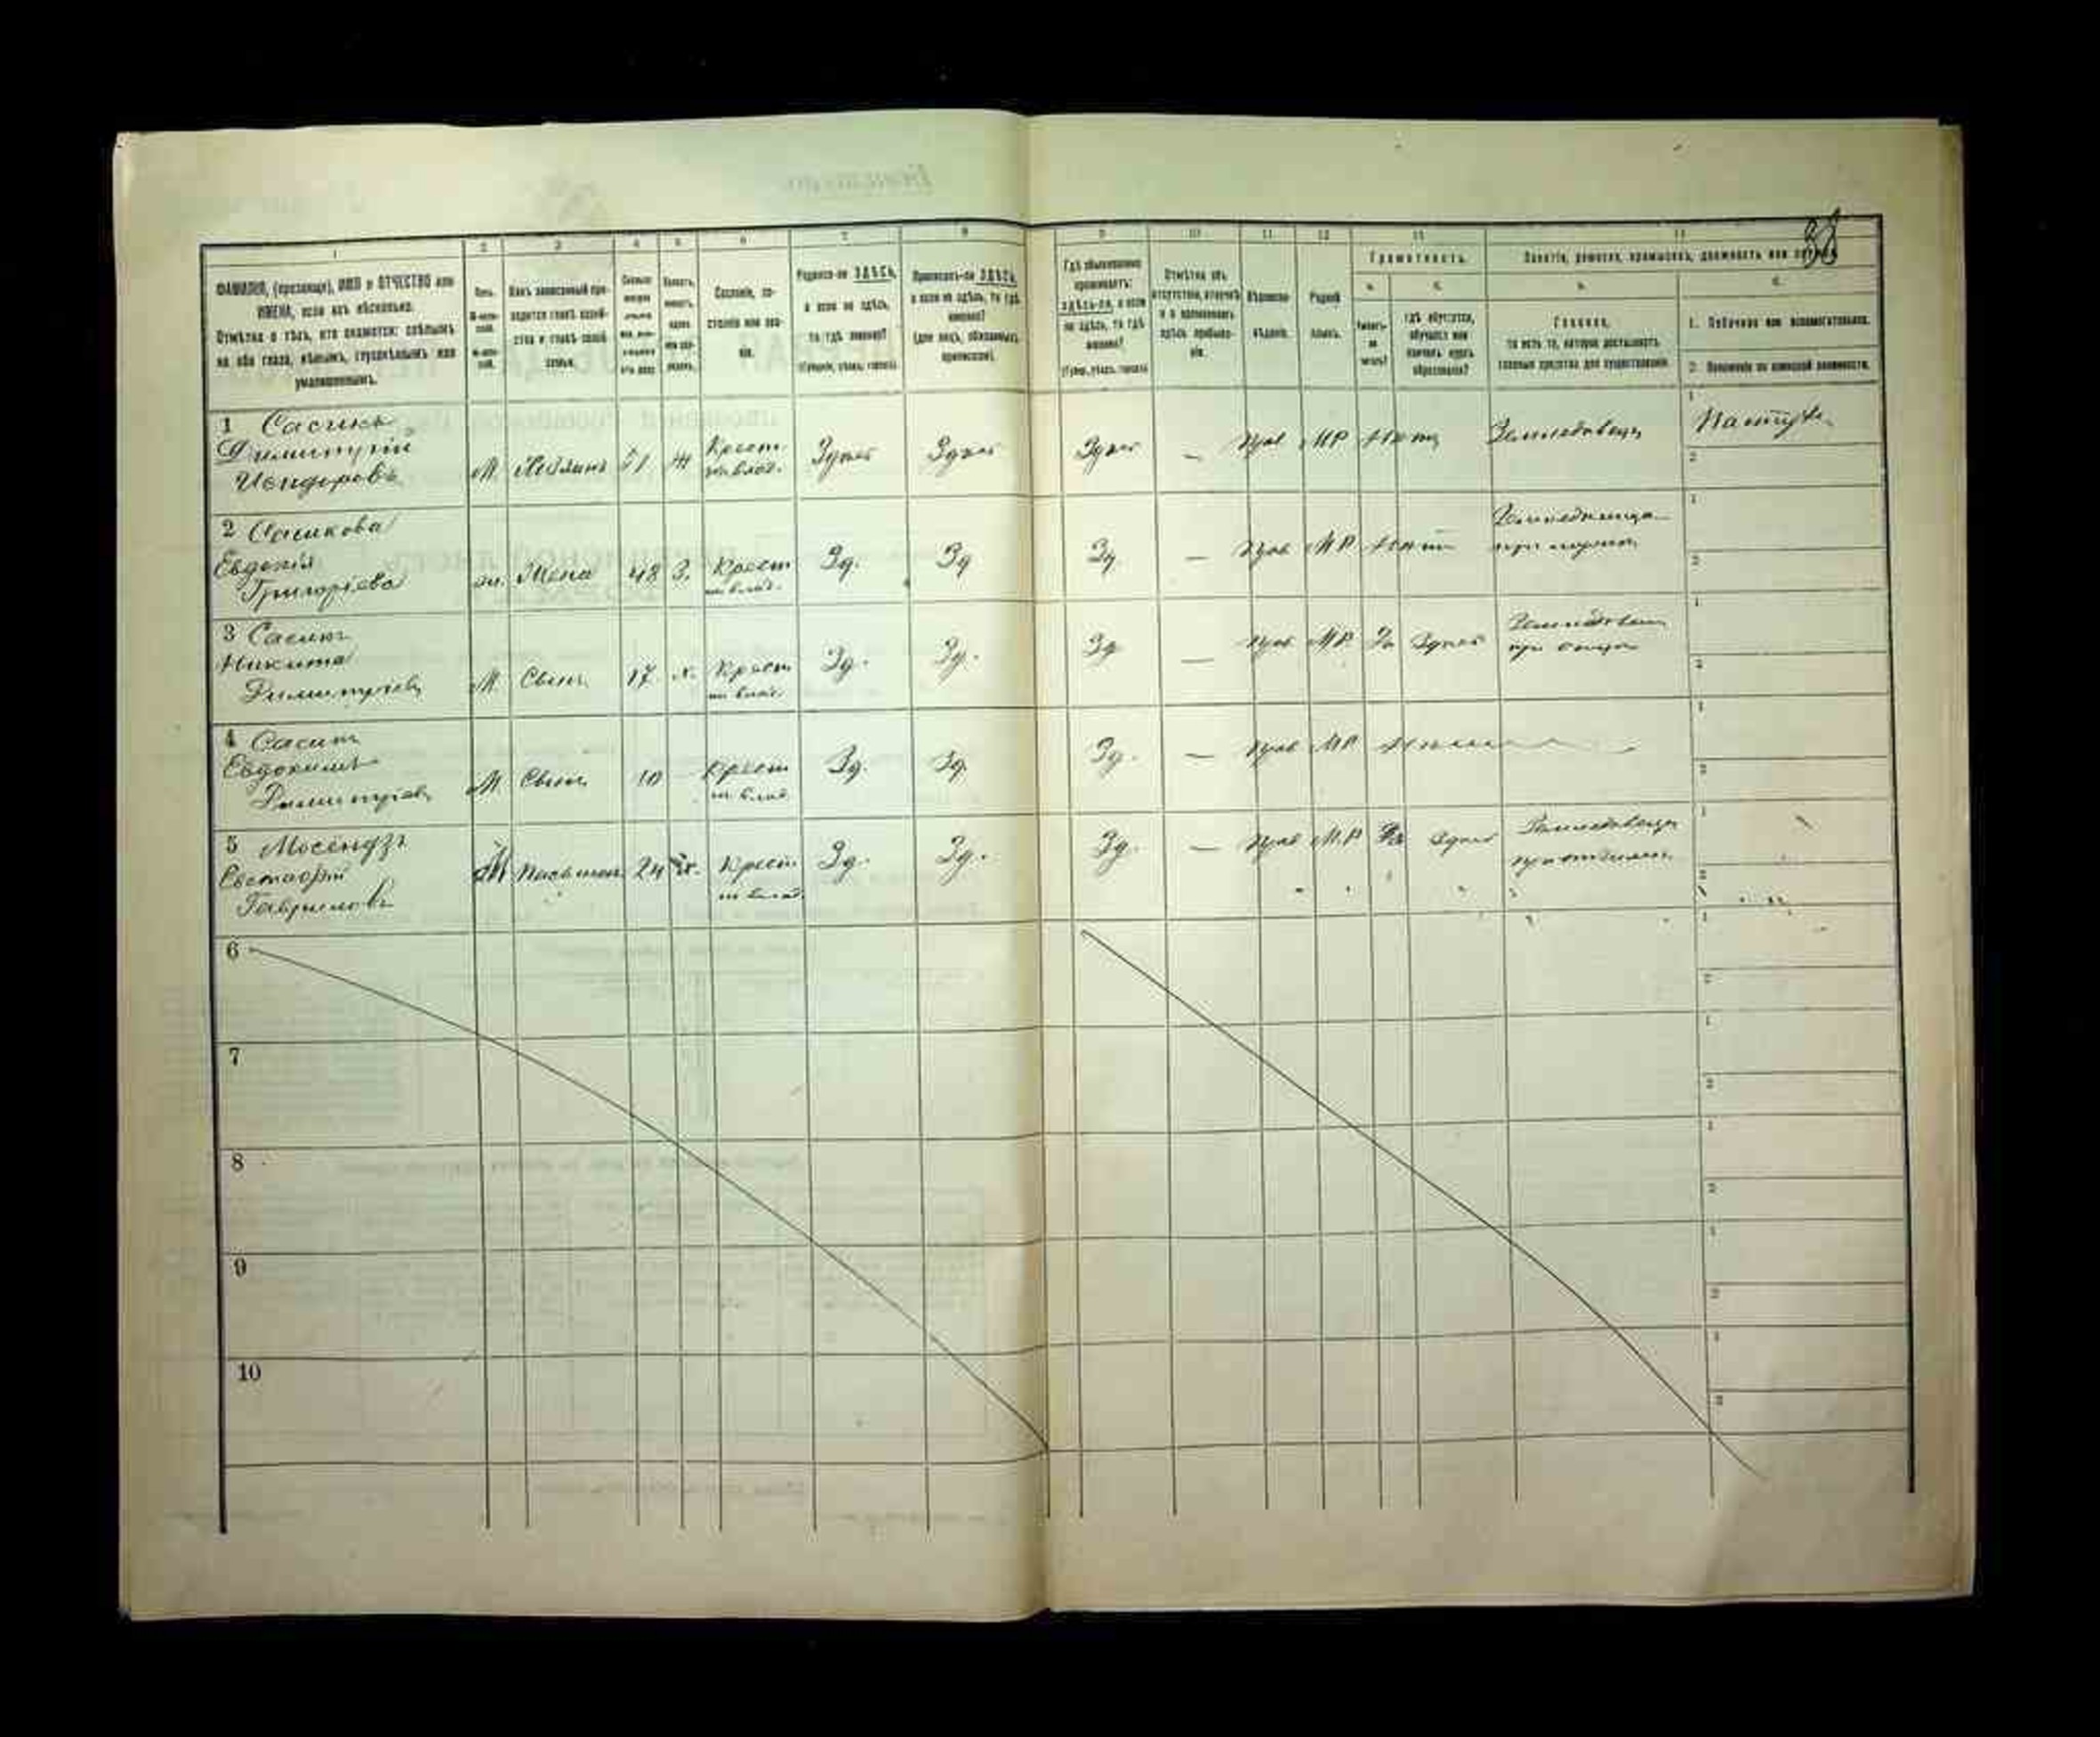 38
1 2 3 4 5 6 7 8 9 10 11 12 13 14
ФАМИЛІЯ, (прозвище), ИМЯ и ОТЧЕСТВО или
ИМЕНА, если ихъ нѣсколько.
Отмѣтка о тѣхъ, кто окажется: слѣпымъ
на оба глаза, нѣмымъ, глухонѣмымъ или
умалишеннымъ.
Полъ.
Какъ записанный при-
ходится главѣ хозяй-
ства и главѣ своей
семьи.
Сословіе, со-
стояніе или зва-
ніе.
Родился-ли ЗДѢСЬ,
а если не здѣсь,
то гдѣ именно?
(Губернія, уѣздъ, городъ).
Приписанъ-ли ЗДѢСЬ,
а если не здѣсь, то гдѣ
именно?
(для лицъ, обязанныхъ
припискою).
Гдѣ обыкновенно
проживаетъ:
здѣсь-ли, а если
не здѣсь, то гдѣ
именно?
(Губер., уѣздъ, городъ)
Отмѣтка объ
отсутствіи, отлучкѣ
и о временномъ
здѣсь пребыва-
ніи.
Вѣроиспо-
вѣданіе.
Родной
языкъ.
Грамотность.
а. б.
Умѣетъ-
ли
читать?
гдѣ обучается,
обучался или
кончилъ курсъ
образованія?
Занятіе, ремесло, промыселъ, должность или служба.
а. б.
Главное,
то есть то, которое доставляетъ
главныя средства для существованія.
1. Побочное или вспомогательное.
2. Положеніе по воинской повинности.
1 Сасикъ
Димитрій
Исидоровъ
М Хозяинъ 51 Ж Крест.
из влад. Здѣсь Здѣсь Здѣсь — Прав МР Нѣтъ Земледѣлецъ Пастухъ
2 Сасикова
Евдокія
Григоріева
Жена 48 З. Крест
из влад. Зд. Зд Зд — Прав МР Нѣтъ
при мужѣ
3 Сасикъ
Никита
Димитріевъ
М Сынъ 17 х. Крест
из влад. Зд. Зд. Зд — Прав МР. Да Здѣсь
при отцѣ
4 Сасикъ
Евдокимъ
Димитріевъ
М Сынъ 10 Крест
из влад. Зд. Зд. Зд. — Прав МР Нѣтъ
5 Мосендзъ
Евстафій
Гавриловъ
М 24 х. Крест
из влад. Зд. Зд. Зд. — Прав М.Р Да Здѣсь Земледѣлецъ
6
7
8
9
10